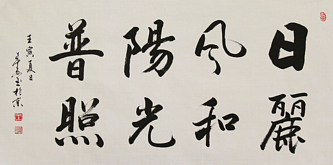 日麗
風和
陽光
普照
壬寅夏日